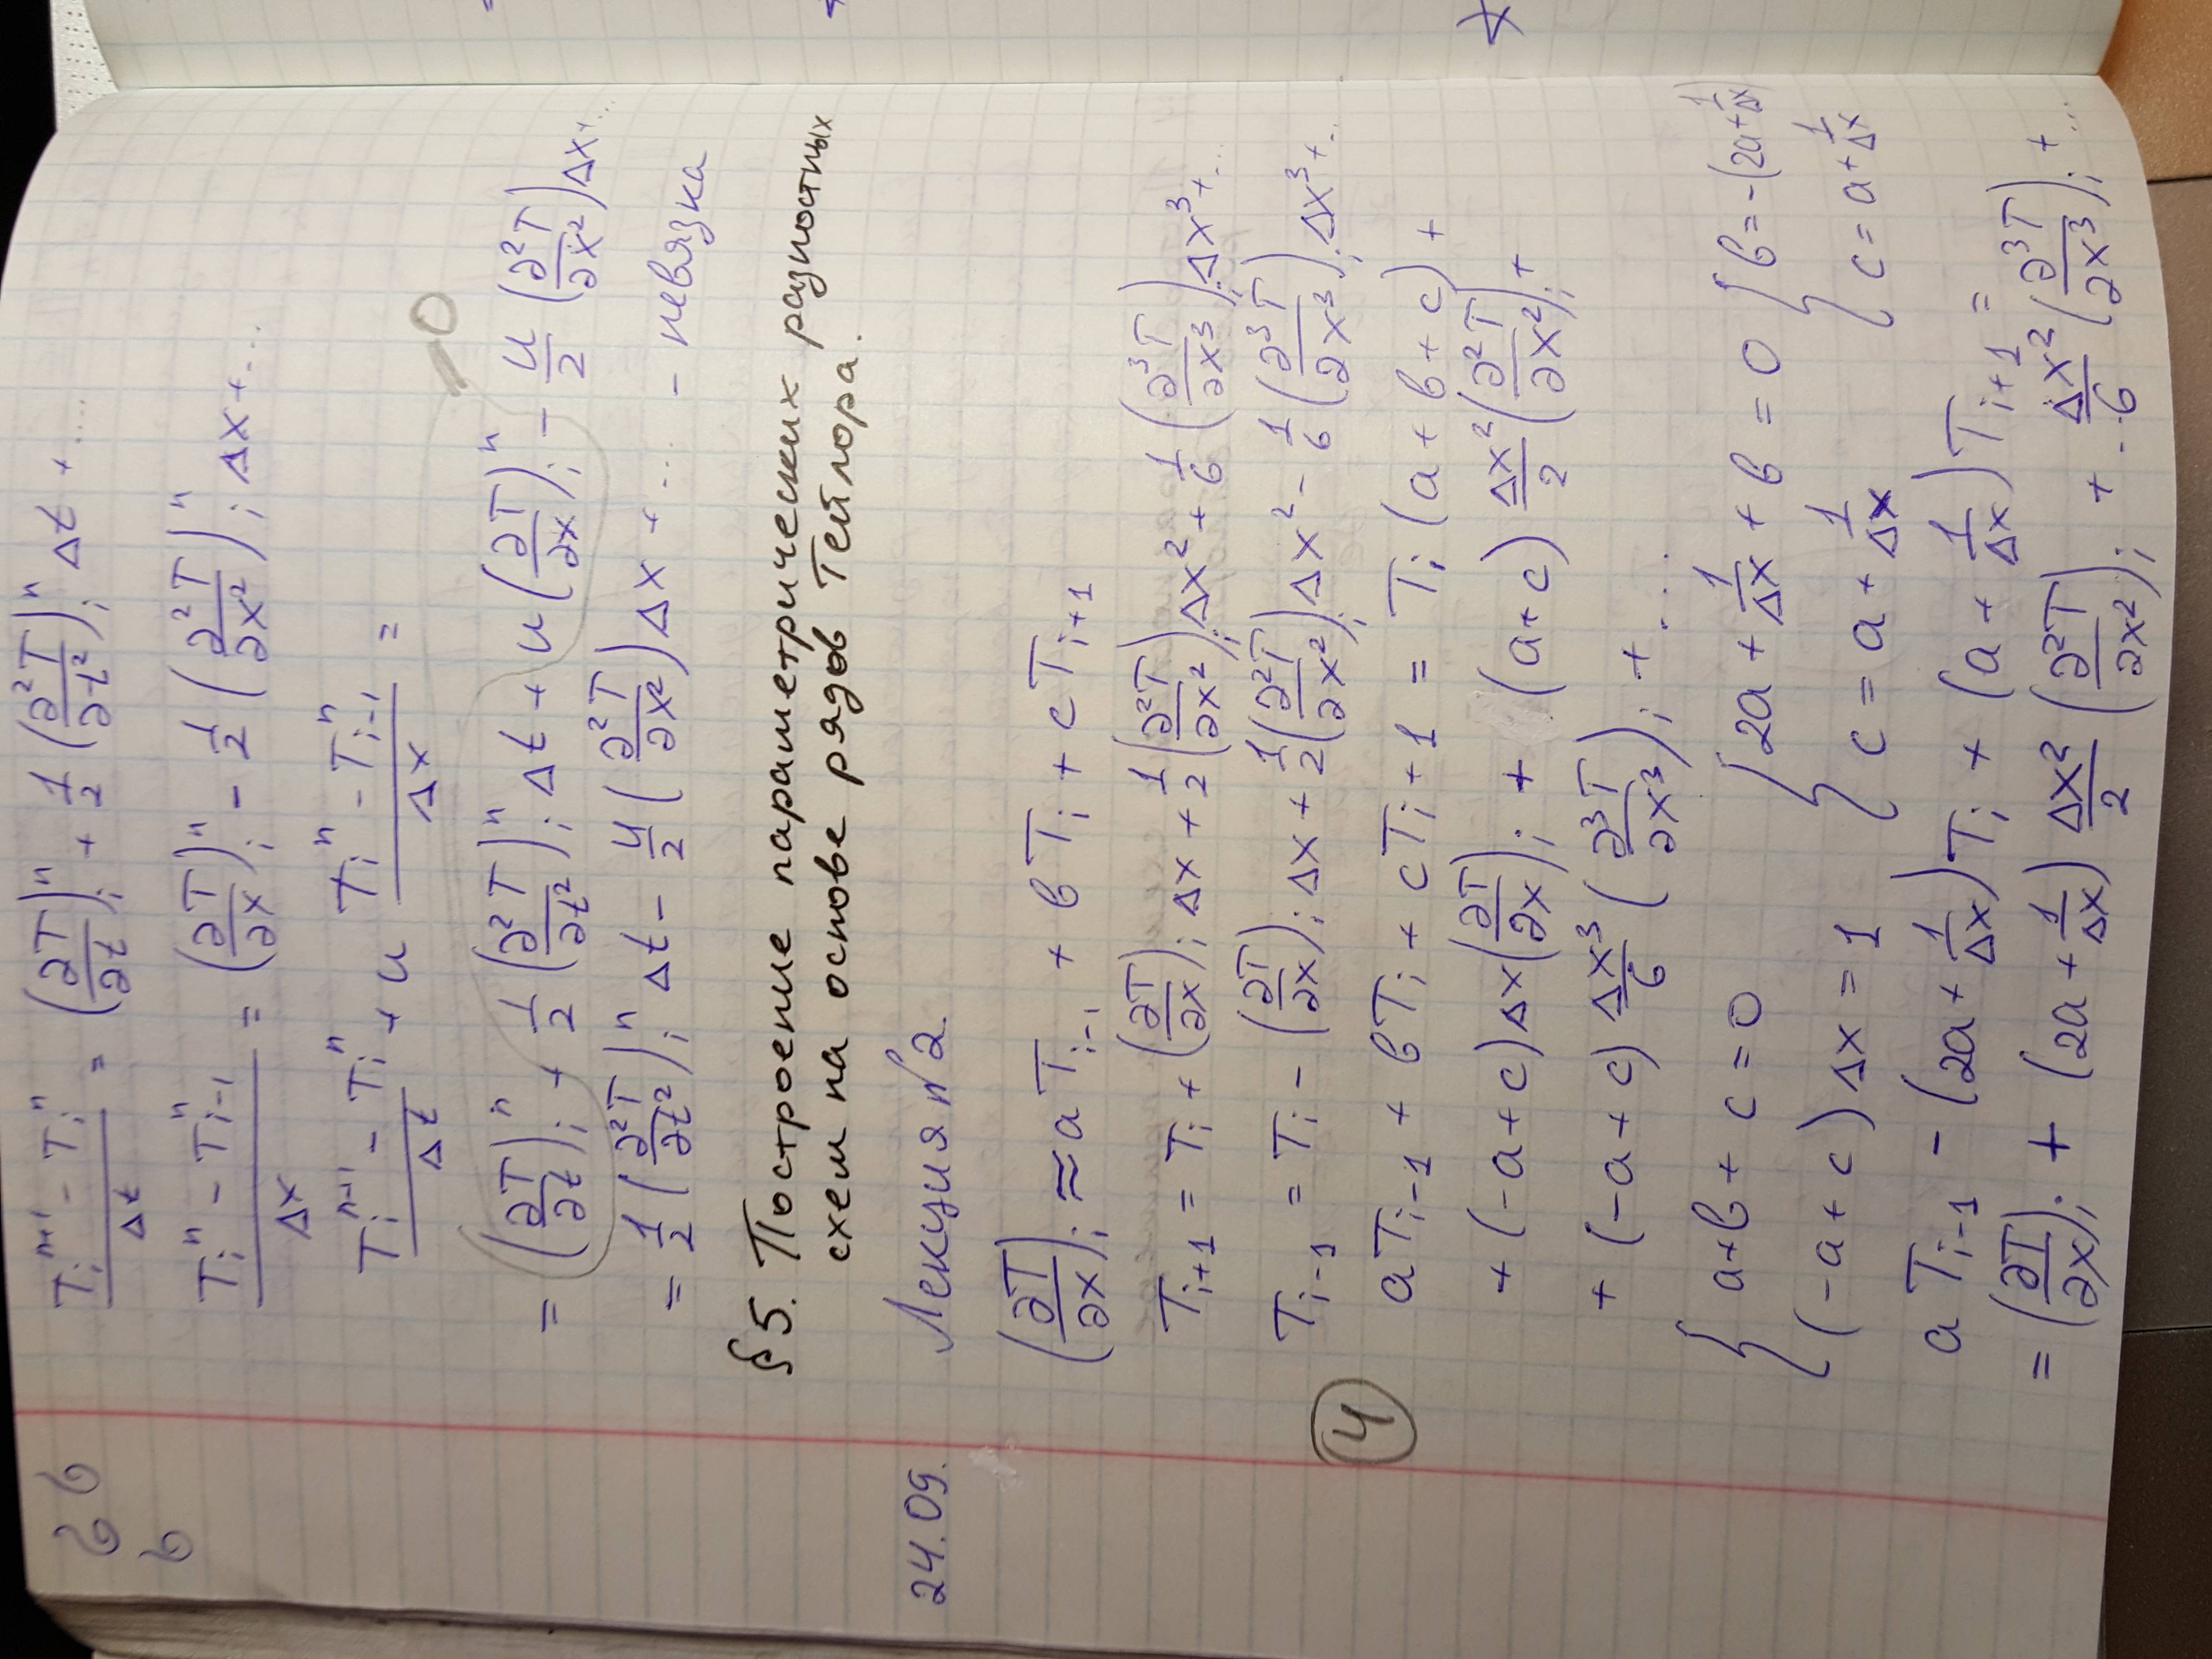 (T_i^{n+1} - T_i^n)/Δt = (∂T/∂t)_i^n + 1/2 (∂²T/∂t²)_i^n Δt + ...
(T_i^n - T_{i-1}^n)/Δx = (∂T/∂x)_i^n - 1/2 (∂²T/∂x²)_i^n Δx + ...
(T_i^{n+1} - T_i^n)/Δt + u (T_i^n - T_{i-1}^n)/Δx =
0
= (∂T/∂t)_i^n + 1/2 (∂²T/∂t²)_i^n Δt + u (∂T/∂x)_i^n - u/2 (∂²T/∂x²) Δx + ...
= 1/2 (∂²T/∂t²)_i^n Δt - u/2 (∂²T/∂x²) Δx + ... - невязка
§5. Построение параметрических разностных
схем на основе рядов Тейлора.
24.09. Лекция №2.
(∂T/∂x)_i ≈ a T_{i-1} + b T_i + c T_{i+1}
T_{i+1} = T_i + (∂T/∂x)_i Δx + 1/2 (∂²T/∂x²)_i Δx² + 1/6 (∂³T/∂x³)_i Δx³ + ...
T_{i-1} = T_i - (∂T/∂x)_i Δx + 1/2 (∂²T/∂x²)_i Δx² - 1/6 (∂³T/∂x³)_i Δx³ + ...
4
aT_{i-1} + bT_i + cT_{i+1} = T_i (a + b + c) +
+ (-a + c) Δx (∂T/∂x)_i + (a + c) Δx²/2 (∂²T/∂x²)_i +
+ (-a + c) Δx³/6 (∂³T/∂x³)_i + ...
{ a + b + c = 0 { 2a + 1/Δx + b = 0 { b = -(2a + 1/Δx)
(-a + c) Δx = 1 c = a + 1/Δx c = a + 1/Δx
a T_{i-1} - (2a + 1/Δx) T_i + (a + 1/Δx) T_{i+1} =
= (∂T/∂x)_i + (2a + 1/Δx) Δx²/2 (∂²T/∂x²)_i + Δx²/6 (∂³T/∂x³)_i + ...